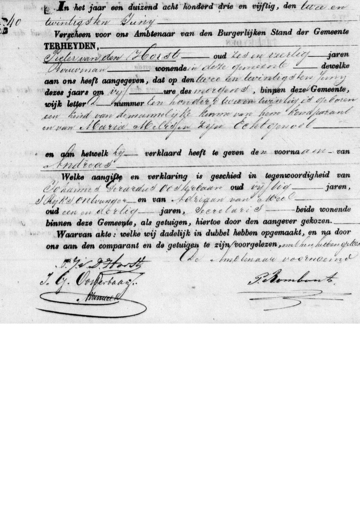 40
In het jaar een duizend acht honderd drie en vijftig, den twee en
twintigsten Juny
Verscheen voor ons Ambtenaar van den Burgerlijken Stand der Gemeente
TERHEYDEN,
van den Horst oud zes en veertig jaren
Bouwman wonende in deze gemeente dewelke
aan ons heeft aangegeven, dat op den twee en twintigsten Juny
dezes jaars om vijf ure, des morgens, binnen deze Gemeente,
wijk letter nummer een honderd twee en twintig is geboren
een kind van de mannelijke kunne van hem Comparant
en van Maria zijne Echtgenoot
en aan hetwelk hij verklaard heeft te geven den voornaam van
Andreas
Welke aangifte en verklaring is geschied in tegenwoordigheid van
Johannes Gerardus oud vijftig jaren,
Rijks Ontvanger en van Adriaan van
oud een en dertig jaren, Secretaris beide wonende
binnen deze Gemeente, als getuigen, hiertoe door den aangever gekozen.
Waarvan akte: welke wij dadelijk in dubbel hebben opgemaakt, en na door
ons aan den comparant en de getuigen te zijn voorgelezen,
De Ambtenaar voornoemd
Horst
J. G.
P. Rombouts